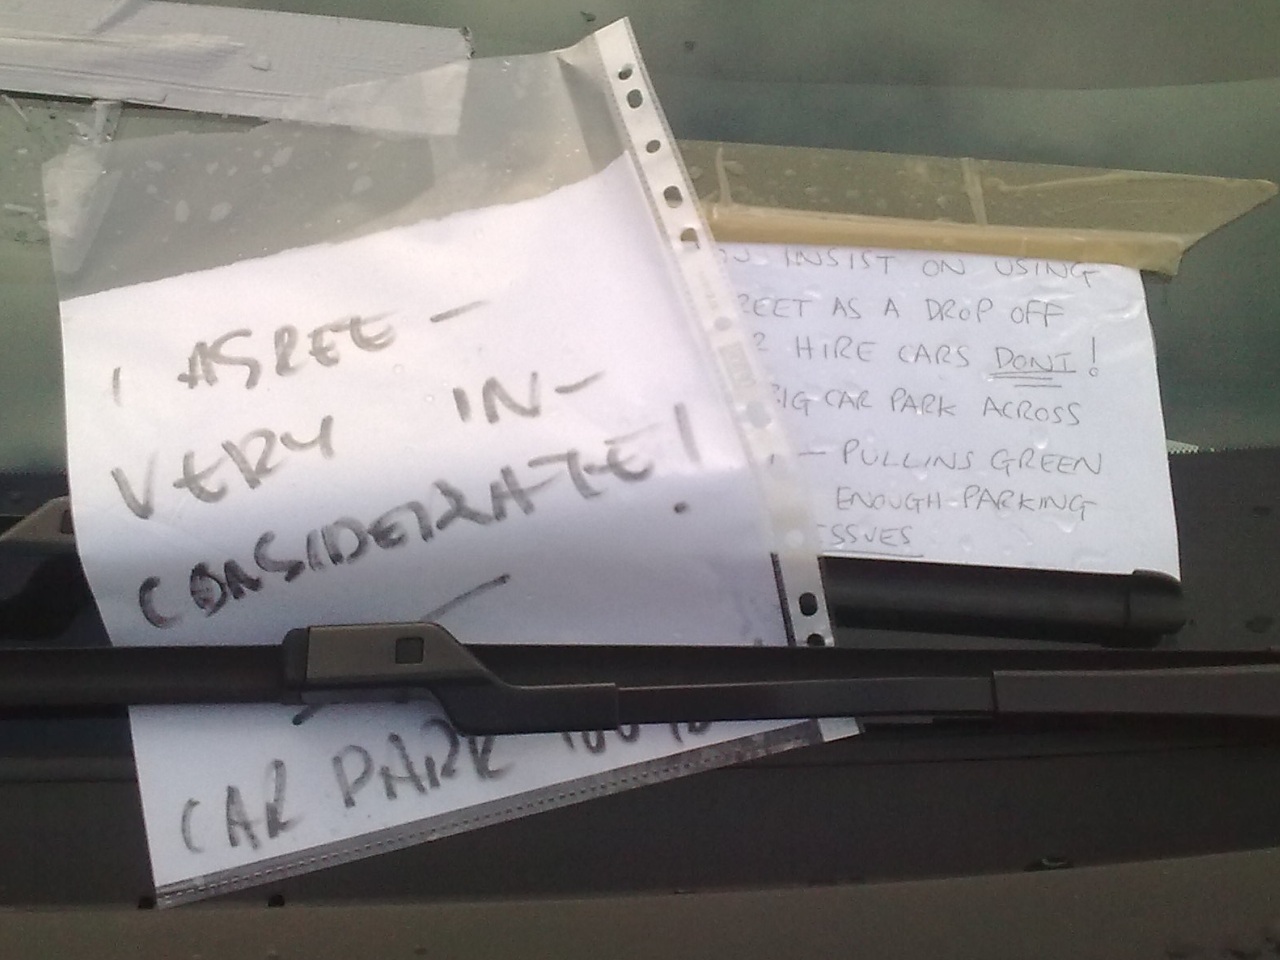 I AGREE -
VERY IN-
CONSIDERATE!
CAR PARK
INSIST ON USING
REET AS A DROP OFF
HIRE CARS DONT!
IG CAR PARK ACROSS
- PULLING GREEN
ENOUGH PARKING
ISSUES